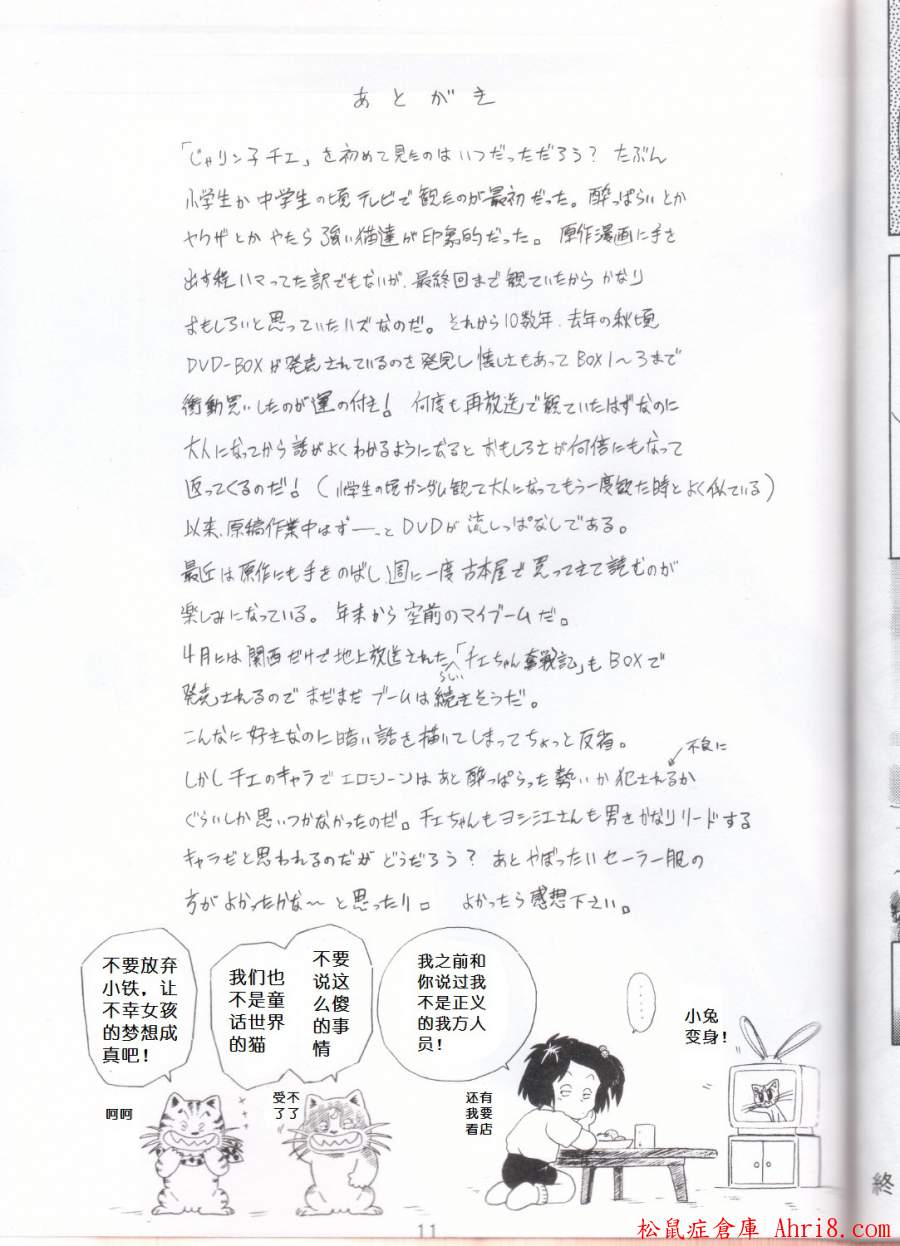 あとがき
「じゃリン子チエ」を初めて見たのはいつだっただろう？ たぶん
小学生か中学生の頃テレビで観たのが最初だった。酔っぱらいとか
ヤクザとかやたら強い猫達が印象的だった。原作漫画に手を
出す程ハマってた訳でもないが、最終回まで観ていたからかなり
おもしろいと思っていたハズなのだ。それから10数年、去年の秋頃
DVD-BOXが発売されているのを発見し懐しさもあってBOX1～3まで
衝動買いしたのが運の付き！ 何度も再放送で観ていたはずなのに
大人になってから話がよくわかるようになるとおもしろさが何倍にもなって
返ってくるのだ！（小学生の頃ガンダム観て大人になってもう一度観た時とよく似ている）
以来、原稿作業中はずーーっとDVDが流しっぱなしである。
最近は原作にも手をのばし、週に一度古本屋で買ってきて読むのが
楽しみになっている。年末から空前のマイブームだ。
4月には関西だけで地上放送されたらしい「チエちゃん奮戦記」もBOXで
発売されるのでまだまだブームは続きそうだ。
こんなに好きなのに暗い話を描いてしまってちょっと反省。
不良に
しかしチエのキャラでエロシーンはあと酔っぱらった勢いか犯されるか
ぐらいしか思いつかなかったのだ。チエちゃんもヨシ江さんも男をかなりリードする
キャラだと思われるのだがどうだろう？ あとやぼったいセーラー服の
方がよかったかな～と思ったり。 よかったら感想下さい。
不要放弃
小铁，让
不幸女孩
的梦想成
真吧！
我们也
不是童
话世界
的猫
不要
说这
么傻
的事
情
我之前和
你说过我
不是正义
的我方人
员！
……
小兔
变身！
呵呵
受不
了了
还有
我要
看店
終
11
松鼠症倉庫 Ahri8.com